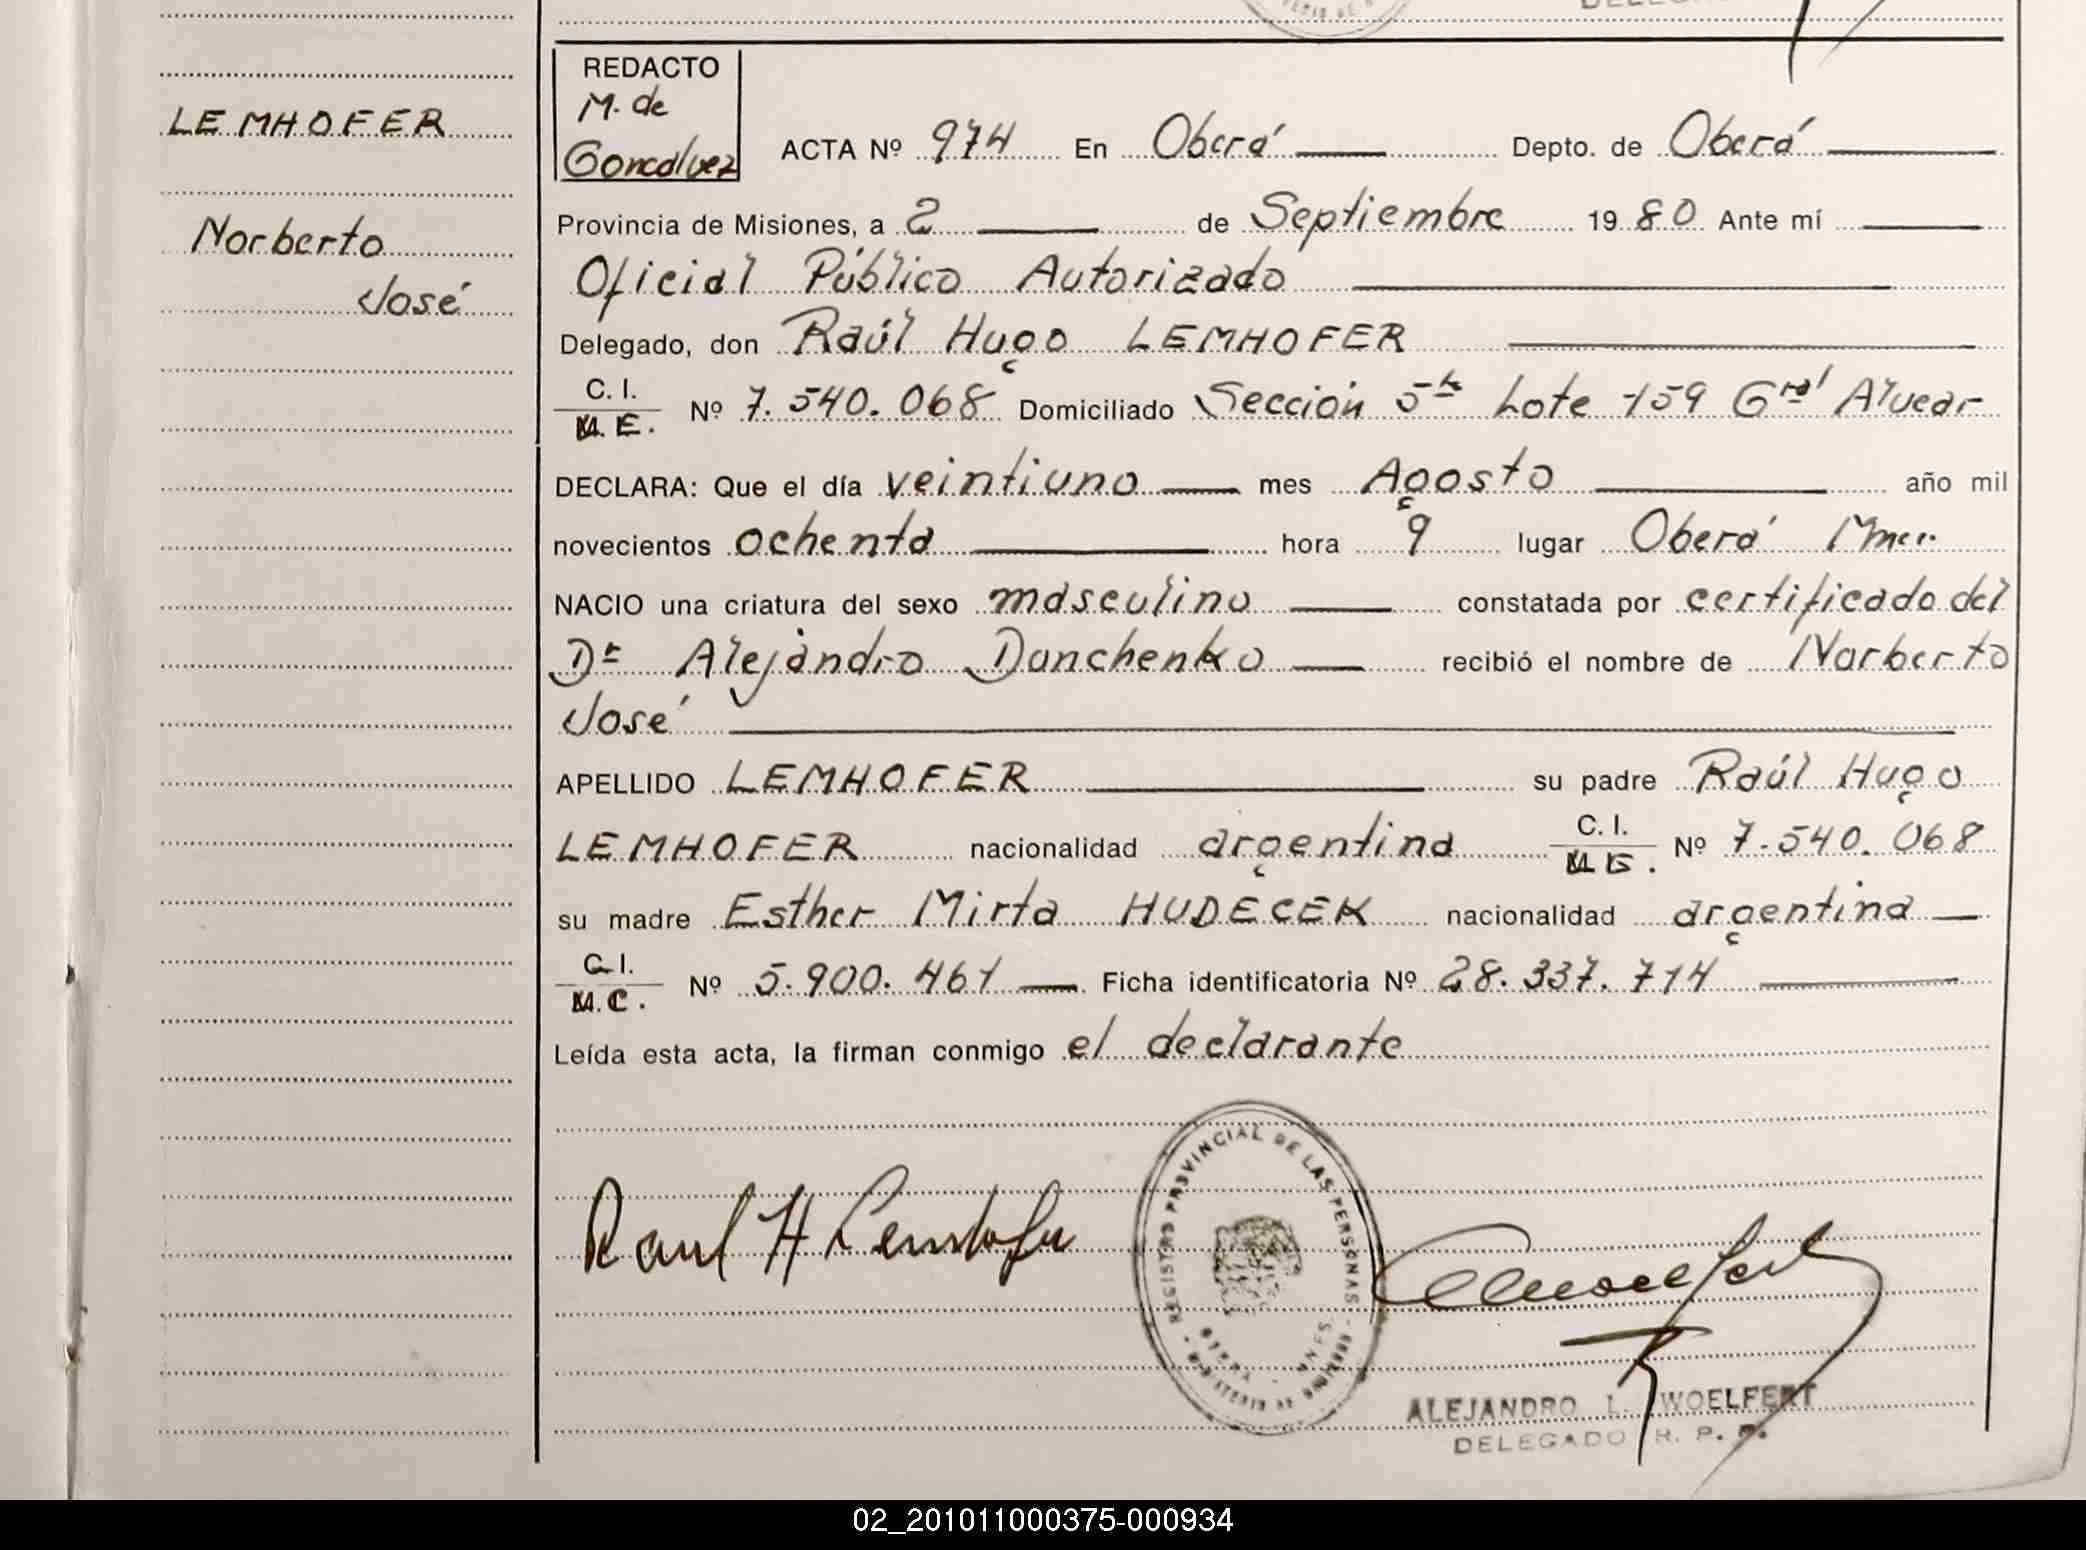 LEMHOFER
Norberto
José
REDACTO
M. de
Goncalvez
ACTA Nº 974 En Oberá Depto. de Oberá
Provincia de Misiones, a 2 de Septiembre 1980 Ante mí
Oficial Público Autorizado
Delegado, don Raúl Hugo LEMHOFER
C. I.
M. E. Nº 7.540.068 Domiciliado Sección 5ta Lote 159 Gral Alvear
DECLARA: Que el día veintiuno mes Agosto año mil
novecientos ochenta hora 9 lugar Oberá
NACIO una criatura del sexo masculino constatada por certificado del
Dr Alejandro Danchenko recibió el nombre de Norberto
José
APELLIDO LEMHOFER su padre Raúl Hugo
LEMHOFER nacionalidad argentina C. I. Nº 7.540.068
su madre Esther Mirta HUDECEK nacionalidad argentina
C. I.
M.C. Nº 5.900.461 Ficha identificatoria Nº 28.337.714
Leída esta acta, la firman conmigo el declarante
REGISTRO PROVINCIAL DE LAS PERSONAS
Raul H Lemhofer
ALEJANDRO L. WOELFERT
DELEGADO R. P. P.
02_201011000375-000934